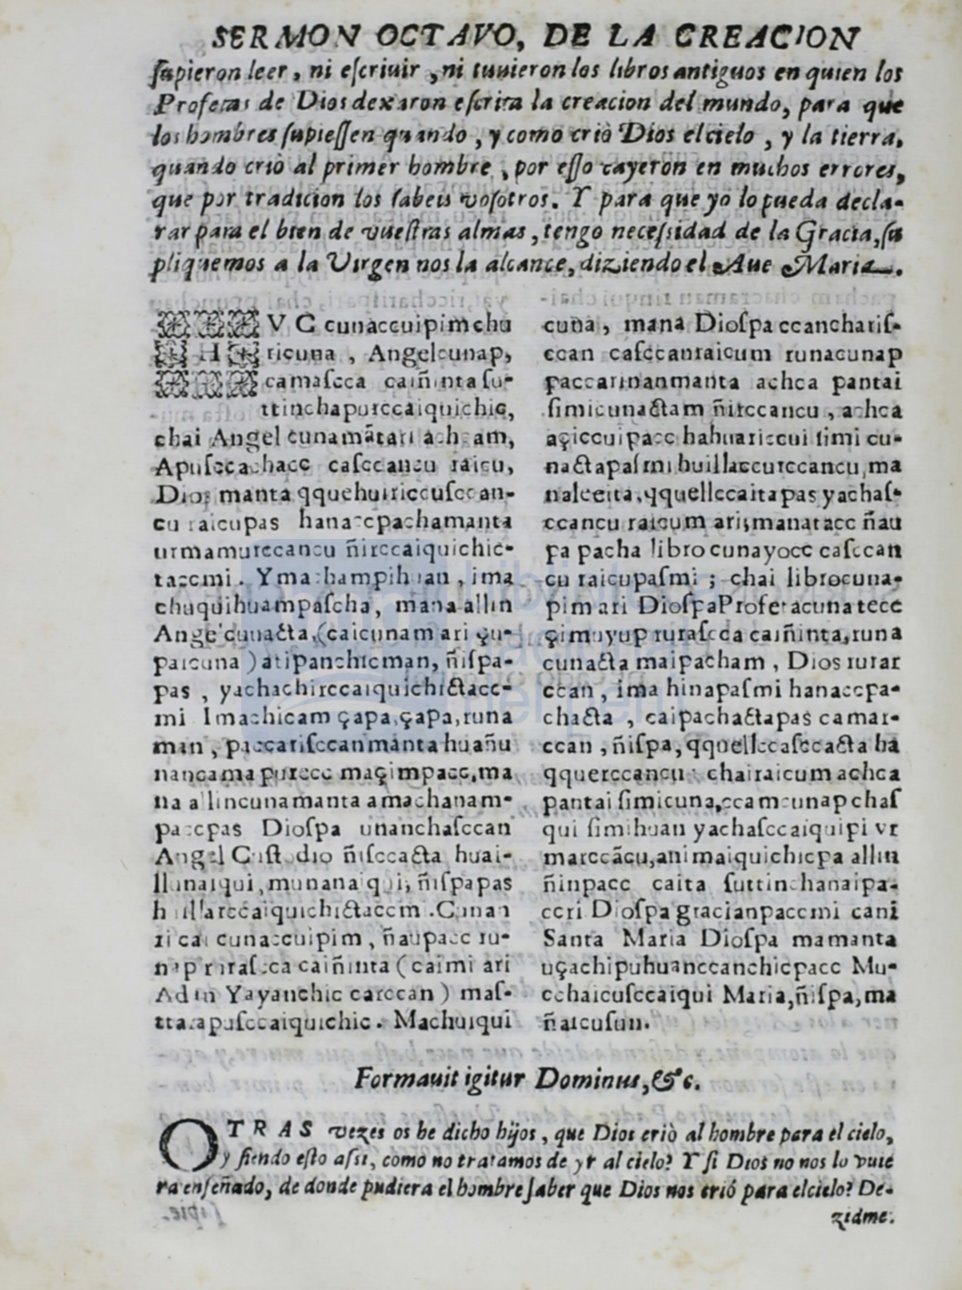 SERMON OCTAVO, DE LA CREACION
ſupieron leer, ni eſcriuir, ni tuuieron los libros antiguos en quien los
Profetas de Dios dexaron eſcrita la creacion del mundo, para que
los hombres ſupieſſen quando, y como criò Dios el cielo, y la tierra,
quando criò al primer hombre, por eſſo cayeron en muchos errores,
que por tradicion los ſabeis voſotros. Y para que yo lo pueda decla-
rar para el bien de vueſtras almas, tengo neceſsidad de la Gracia, ſu
pliquemos a la Virgen nos la alcance, diziendo el Aue Maria.
cunaccuipimchu
ricuna, Angelcunap,
camaſcca caiñinta ſu-
ttinchapurccaiquichic,
chai Angelcunamãtari
Apuſccachacc caſccancu raicu,
Diosmanta qquehuiriccuſccan-
cu raicupas hanaccpachamanta
urmamurccancu ñirccaiquichic-
taccmi. Ymachampihuan, ima
chuquihuampaſcha, mana allin
Angelcunacta, (caicunam ari çu-
paicuna) atipanchicman, ñiſpa-
pas, yachachirccaiquichictacc-
mi Imachicam çapa, çapa, runa
man, paccariſccanmanta huañu
nancama purecc maçimpacc, ma
na allincunamanta amachanam-
paccpas Dioſpa unanchaſccan
Angel Cuſtodio ñiſccacta huai-
llunaiqui, munanaiqui, ñiſpapas
huillarccaiquichictaccm. Cunan
ricai cunaccuipim, ñaupacc ru-
nap ruraſcca caiñinta (caimi ari
Adan Yayanchic carccan) maſ-
ttarapuſccaiquichic. Machuiqui
cuna, mana Dioſpa ccanchariſ-
ccan caſccanraicum runacunap
paccarinanmanta achca pantai
ſimicunactam ñirccancu, achca
açiccuipacc hahuariccui ſimi cu-
nactapaſmi huillaccurccancu, ma
na leeita, qquellccaitapas yachaſ-
ccancu raicum ari; manaracc ñau
pa pacha librocunayocc caſccan
cu raicupaſmi; chai librocuna-
pim ari Dioſpa Profetacuna tecc
çimuyup ruraſcca caiñinta, runa
cunacta maipacham, Dios rurar
ccan, ima hinapaſmi hanaccpa-
chacta, caipachactapas camar-
ccan, ñiſpa, qquellccaſccacta ha
qquerccancu: chairaicum achca
pantai ſimicuna, ccamcunap chaſ
qui ſimihuan yachaſccaiquipi vr
marccãcu, animaiquichicpa allin
ñinpacc caita ſuttinchanaipa-
ccri Dioſpa gracianpaccmi cani
Santa Maria Dioſpa mamanta
uçachipuhuanccanchicpacc Mu-
cchaicuſccaiqui Maria, ñiſpa, ma
ñaicuſun.
Formauit igitur Dominus, &c.
OTRAS vezes os he dicho hijos, que Dios criò al hombre para el cielo,
y ſiendo eſto aſsi, como no tratamos de yr al cielo? Y ſi Dios no nos lo vuie
ra enſeñado, de donde pudiera el hombre ſaber que Dios nos crió para el cielo? De-
zidme.